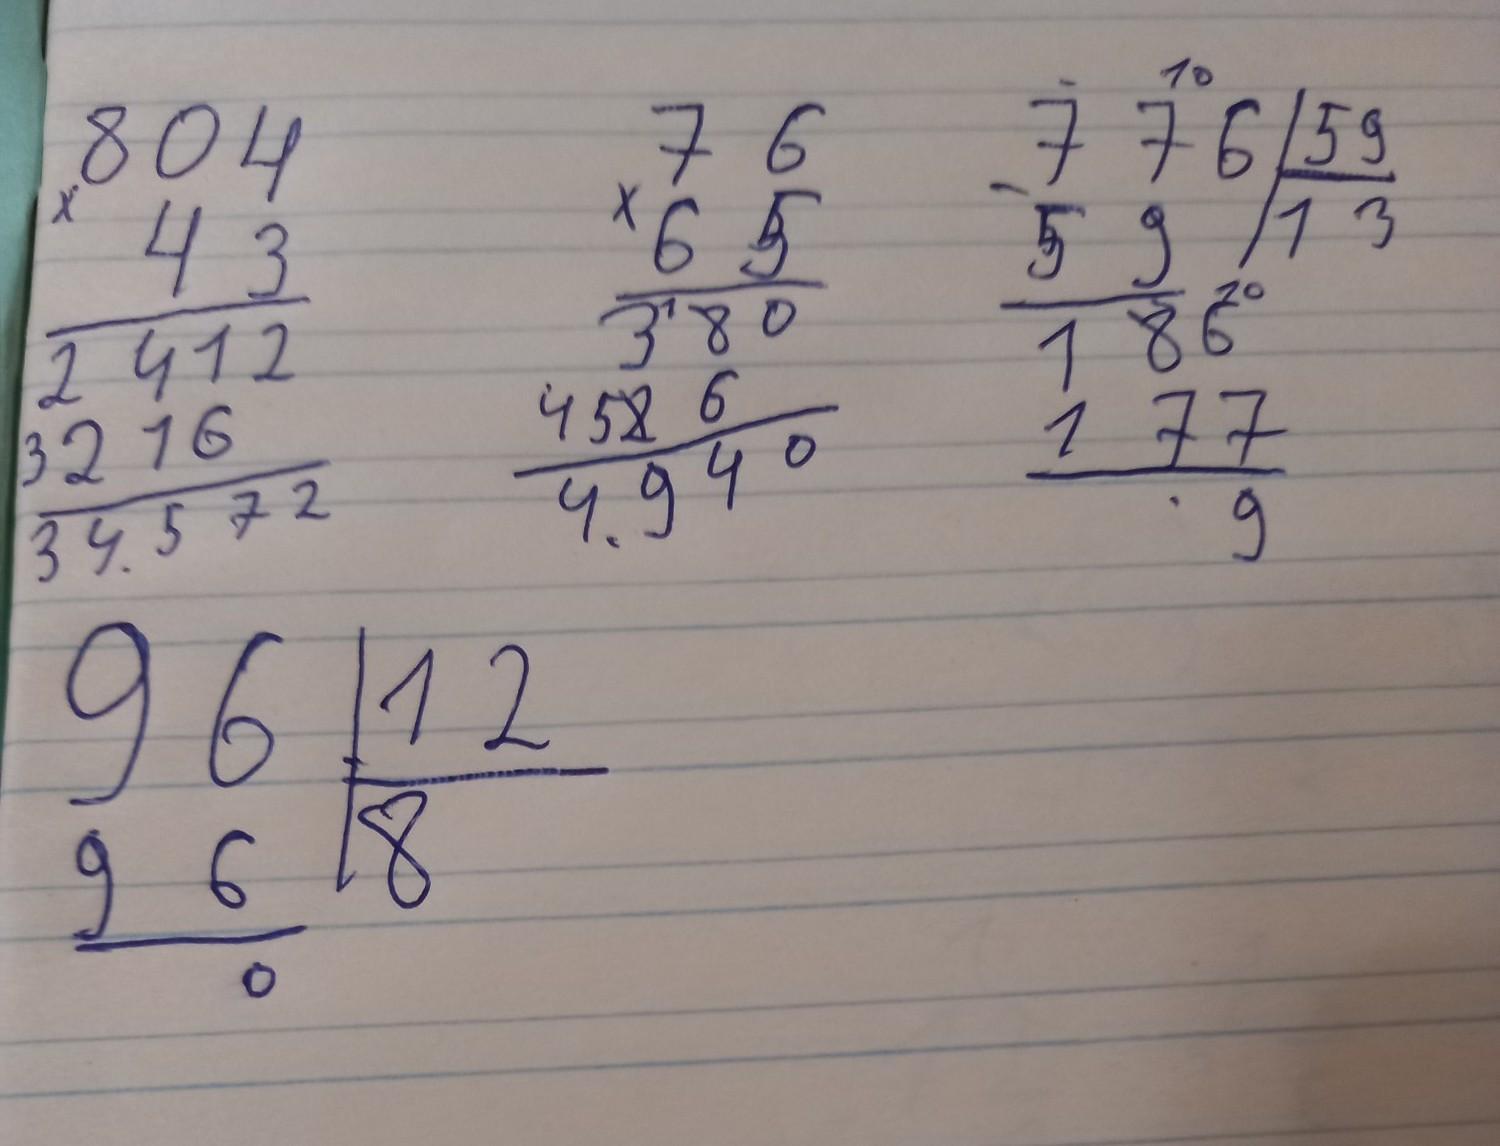 804
x 43
2412
3216
34.572
76
x 65
380
456
4.940
776 59
- 59 13
186
177
9
96 12
96 8
0